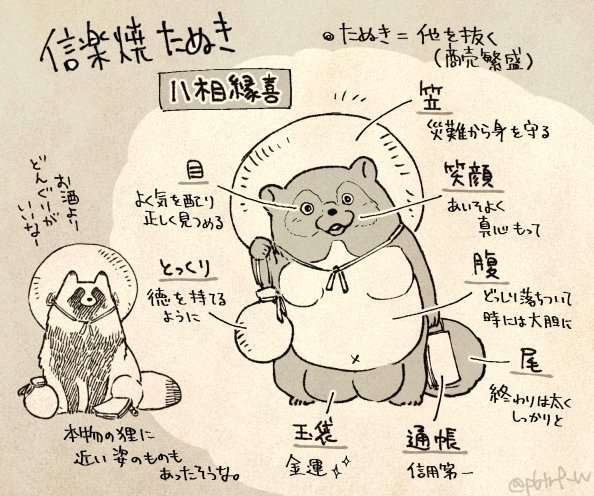 信楽焼たぬき
◎たぬき=他を抜く
(商売繁盛)
八相縁喜
笠
災難から身を守る
目
よく気を配り
正しく見つめる
笑顔
あいそよく
真心もって
とっくり
徳を持てる
ように
腹
どっしり落ちついて
時には大胆に
尾
終わりは太く
しっかりと
玉袋
金運
通帳
信用第一
お酒より
どんぐりが
いいなー
本物の狸に
近い姿のものも
あったそうな。